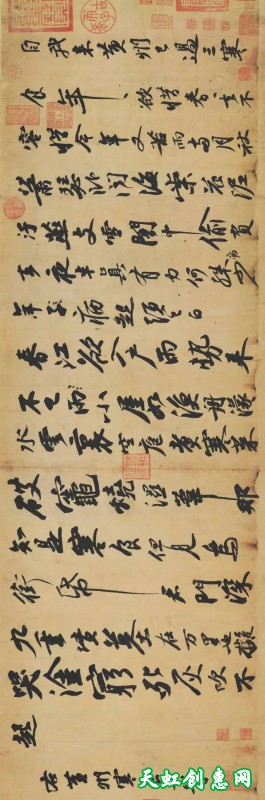 自我来黄州已過三寒
食年〻欲惜春〻去不
容惜今年又苦雨兩月秋
蕭瑟卧聞海棠花泥
汙燕支雪闇中偷負
去夜半真有力何殊病少
年子病起頭已白
春江欲入户雨勢来
不已雨小屋如漁舟濛〻
水雲裏空庖煮寒菜
破竈燒濕葦那
知是寒食但見烏
銜帋君門深
九重墳墓在万里也擬
哭塗窮死灰吹不
起
右黄州寒食
天虹创意网